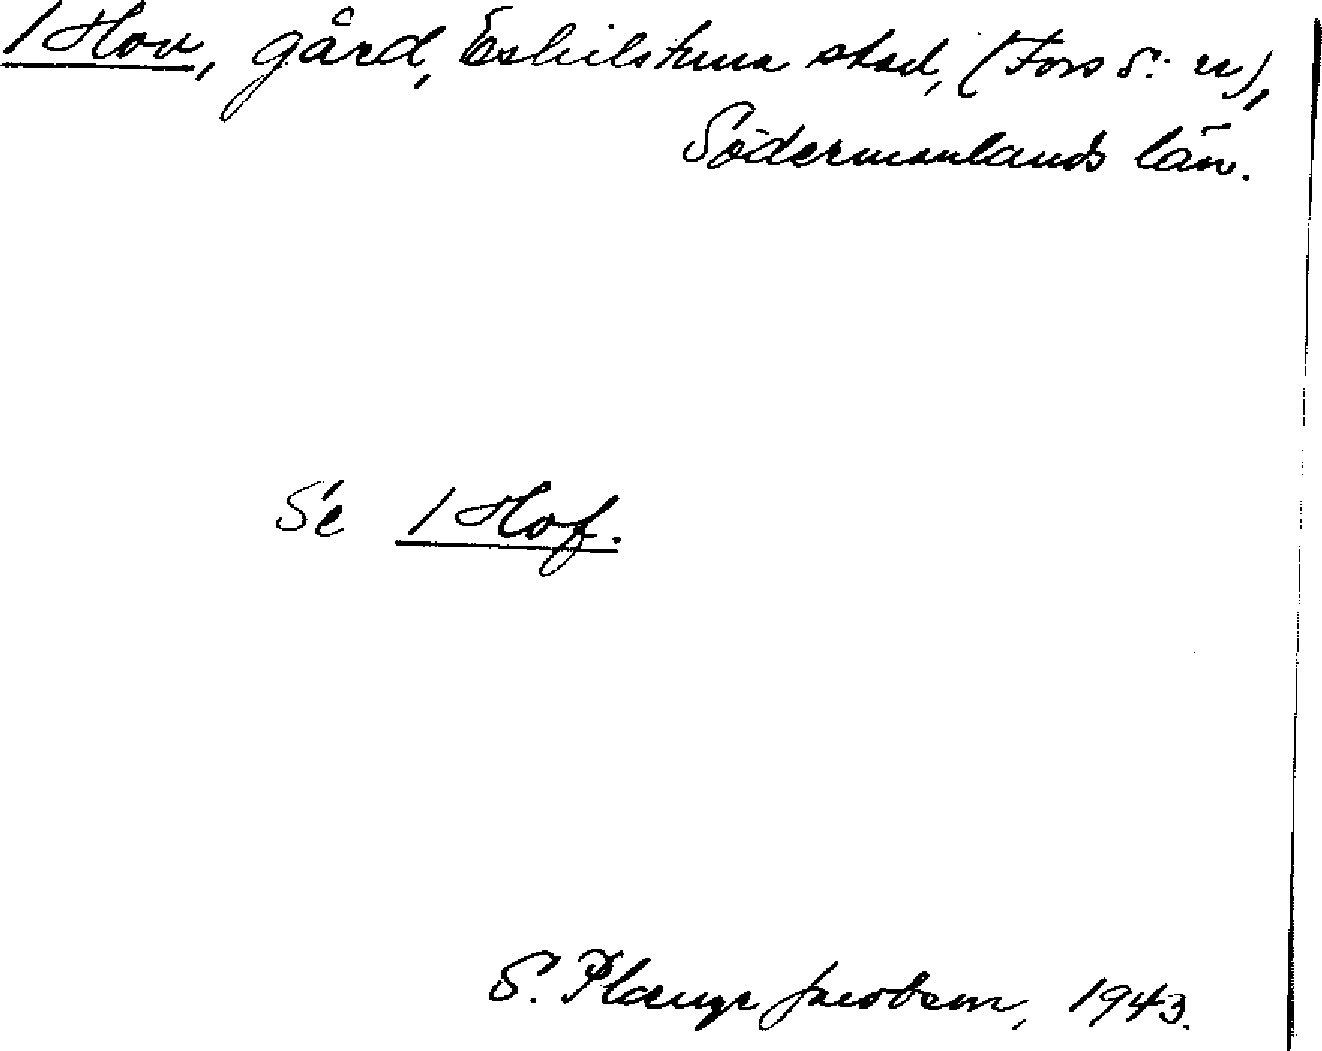 1 Hov, gård, Eskilstuna stad, (Fors s:n),
Södermanlands län.
Se 1 Hof.
S. Plænge Jacobson, 1943.